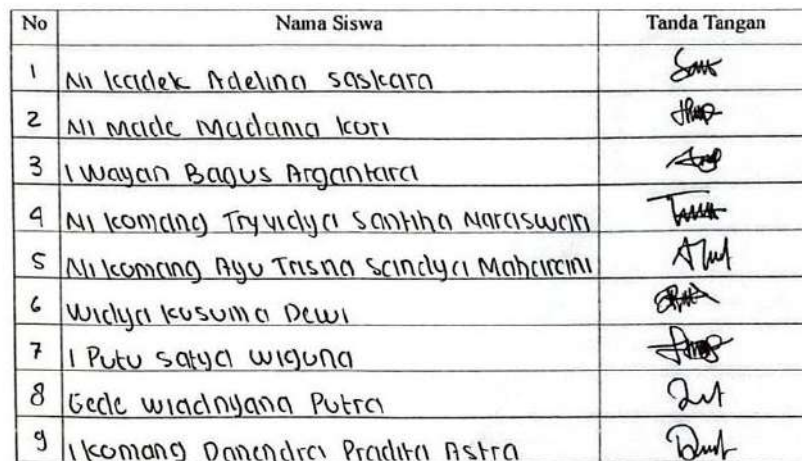 No Nama Siswa Tanda Tangan
1 Ni Kadek Adelina Saskara
2 Ni Made Madania Kori
3 I Wayan Bagus Argantara
4 Ni Komang Tryvidya Santiha Naraswari
5 Ni Komang Ayu Trisna Scindya Maharani
6 Widya Kusuma Dewi
7 I Putu Satya Wiguna
8 Gede Wiadnyana Putra
9 I Komang Danendra Pradita Astra